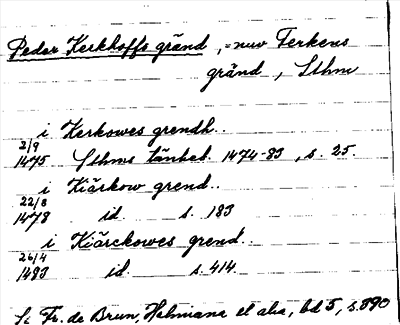 Peder Kerkhoffs gränd, = nuv Ferkens
gränd, Sthm
i Kerkowes grendh..
2/9
1475 Sthms tänkeb. 1474-83, s. 25.
i Kiärkow grend..
22/8
1478 id. s. 183
i Kiärckowes grend..
26/4
1483 id. s. 414.
Fr. de Brun, Holmiana et alia, bd 5, s. 390